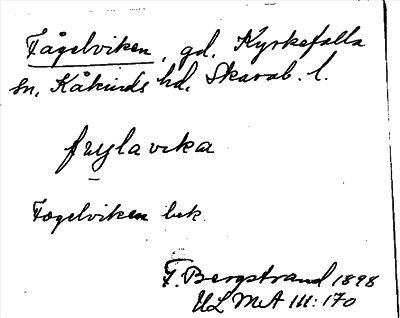 Fågelviken, gd, Kyrkefalla
sn, Kåkinds hd, Skarab. l.
fuglavika
Fogelviken bek.
F. Bergstrand 1898
ULMA 111:170